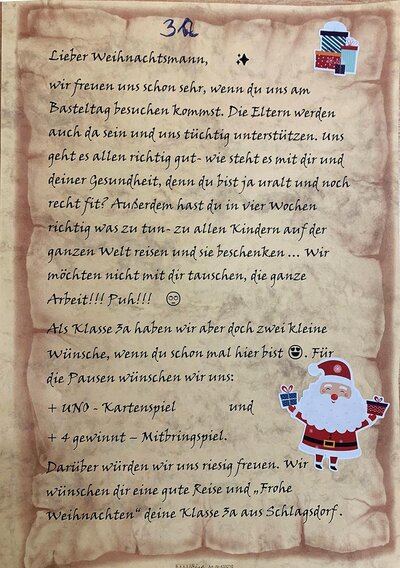 3a
Lieber Weihnachtsmann,
wir freuen uns schon sehr, wenn du uns am
Basteltag besuchen kommst. Die Eltern werden
auch da sein und uns tüchtig unterstützen. Uns
geht es allen richtig gut- wie steht es mit dir und
deiner Gesundheit, denn du bist ja uralt und noch
recht fit? Außerdem hast du in vier Wochen
richtig was zu tun- zu allen Kindern auf der
ganzen Welt reisen und sie beschenken ... Wir
möchten nicht mit dir tauschen, die ganze
Arbeit!!! Puh!!! 🙄
Als Klasse 3a haben wir aber doch zwei kleine
Wünsche, wenn du schon mal hier bist 😍. Für
die Pausen wünschen wir uns:
+ UNO - Kartenspiel und
+ 4 gewinnt – Mitbringspiel.
Darüber würden wir uns riesig freuen. Wir
wünschen dir eine gute Reise und „Frohe
Weihnachten“ deine Klasse 3a aus Schlagsdorf.